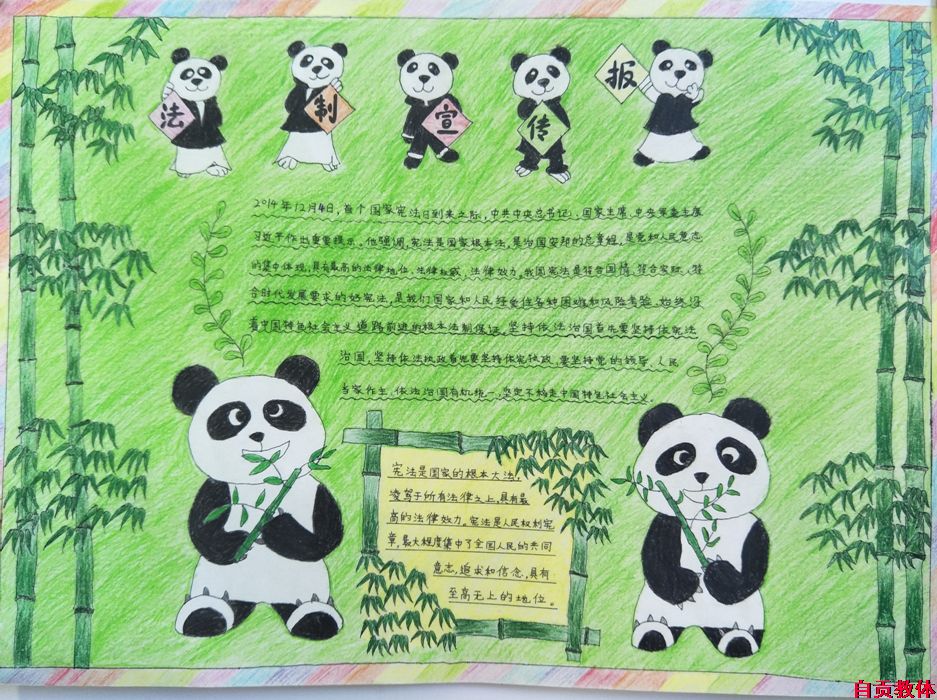 法制宣传报
2014年12月4日,首个国家宪法日到来之际,中共中央总书记、国家主席、中央军委主席
习近平作出重要指示。他强调,宪法是国家根本法,是治国安邦的总章程,是党和人民意志
的集中体现,具有最高的法律地位、法律权威、法律效力。我国宪法是符合国情、符合实际、符
合时代发展要求的好宪法,是我们国家和人民经受住各种困难和风险考验、始终沿
着中国特色社会主义道路前进的根本法制保证。坚持依法治国首先要坚持依宪法
治国,坚持依法执政首先要坚持依宪执政。要坚持党的领导、人民
当家作主、依法治国有机统一,坚定不移走中国特色社会主义。
宪法是国家的根本大法,
凌驾于所有法律之上,具有最
高的法律效力。宪法是人民权利宪
章,最大程度集中了全国人民的共同
意志,追求和信念,具有
至高无上的地位。
自贡教体